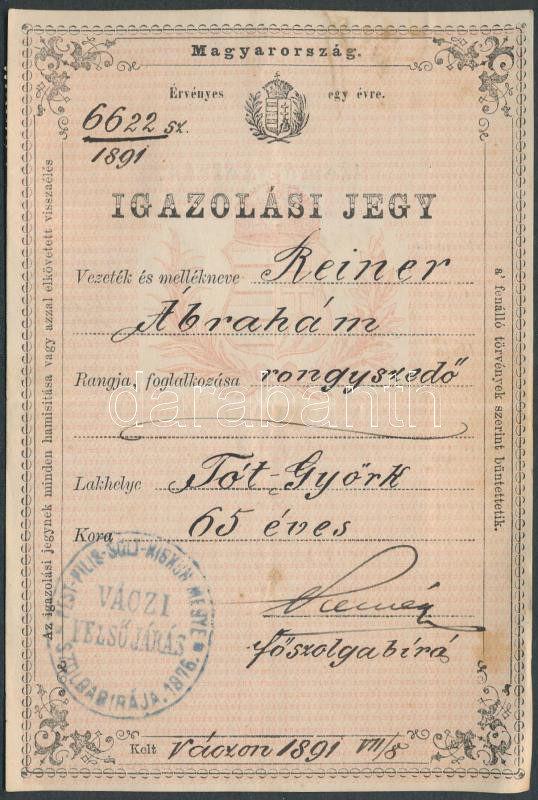 Magyarország.
Érvényes egy évre.
6622 sz.
1891
IGAZOLÁSI JEGY
Vezeték és mellékneve Reiner
Ábrahám
Rangja, foglalkozása rongyszedő
darabanth
Lakhelye Tót-Györk
Kora 65 éves
főszolgabíró
Kelt Váczon 1891 VII/8
Az igazolási jegynek minden hamisítása vagy azzal elkövetett visszaélés
a' fenálló törvények szerint büntettetik.
PEST-PILIS-SOLT-KISKUN MEGYE
VÁCZI
FELSŐJÁRÁS
SZOLGABIRÁJA. 1876.